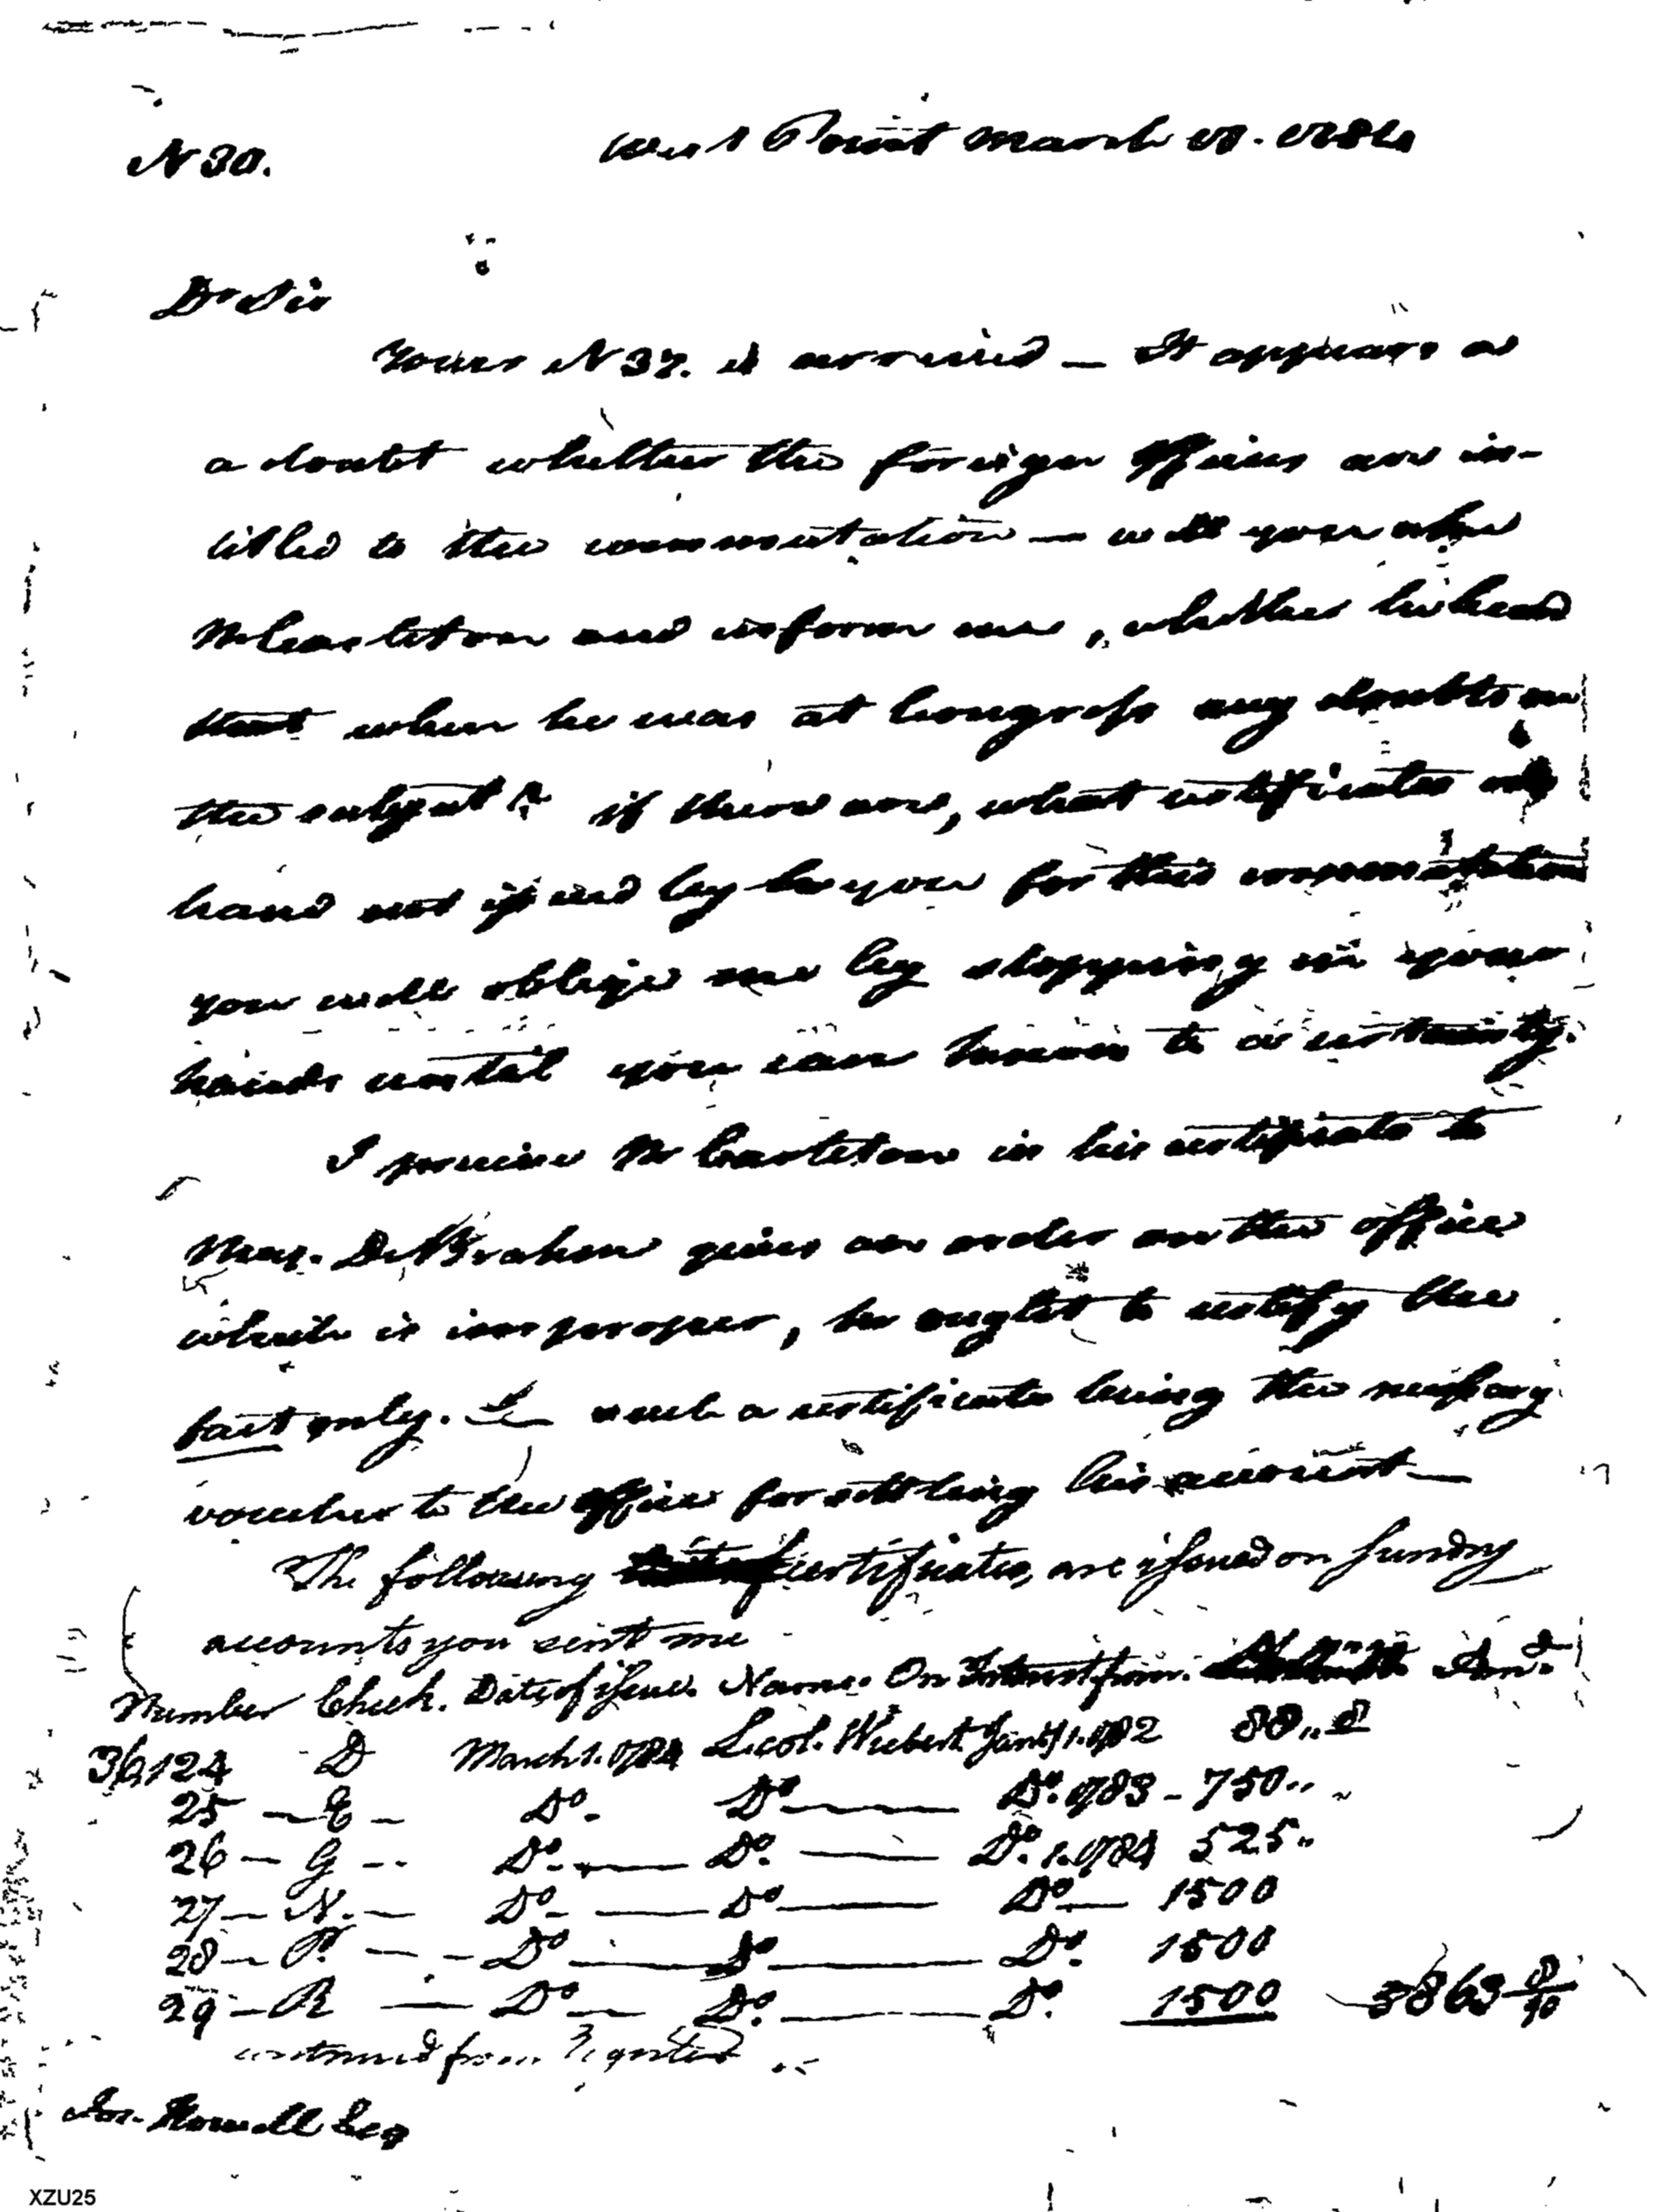 N 30. West Point March 1784
Dr Sir
Yours N 37. is arrived — It appears as
a doubt whether the foreign officers are in-
titled to the commutation — will you ask
Mr Carleton and inform me, whether he heard
that when he was at Congress any doubts on
the subject? if there are, what certificates
have not issued by you for this commutation
you will oblige me by stopping in your
hands until you can known to a certainty.
I perceive Mr Carleton in his certificate to
Maj. De Brahm gives an order on the office
which is improper, he ought to certify the
fact only. such a certificate being the necessary
voucher to the office for settling his account —
The following certificates, are issued on sundry
accounts you sent me
Number Check. Date of issue. Name. On Interest from. Am.t
36,124 D March 1. 1784 L. Col. Wiebert Jany 1. 1782 88,,8
25 — E — Do. Do — Do. 1783 - 750..
26 — G -- Do. — Do. — Do. 1. 1784 525..
27 — N. — Do — Do — Do — 1500
28 — P. — - Do — Do — Do. 1500
29 — R — Do — Do. — Do. 1500 5863 8/90
continued from
Jos. Howell Esq
XZU25